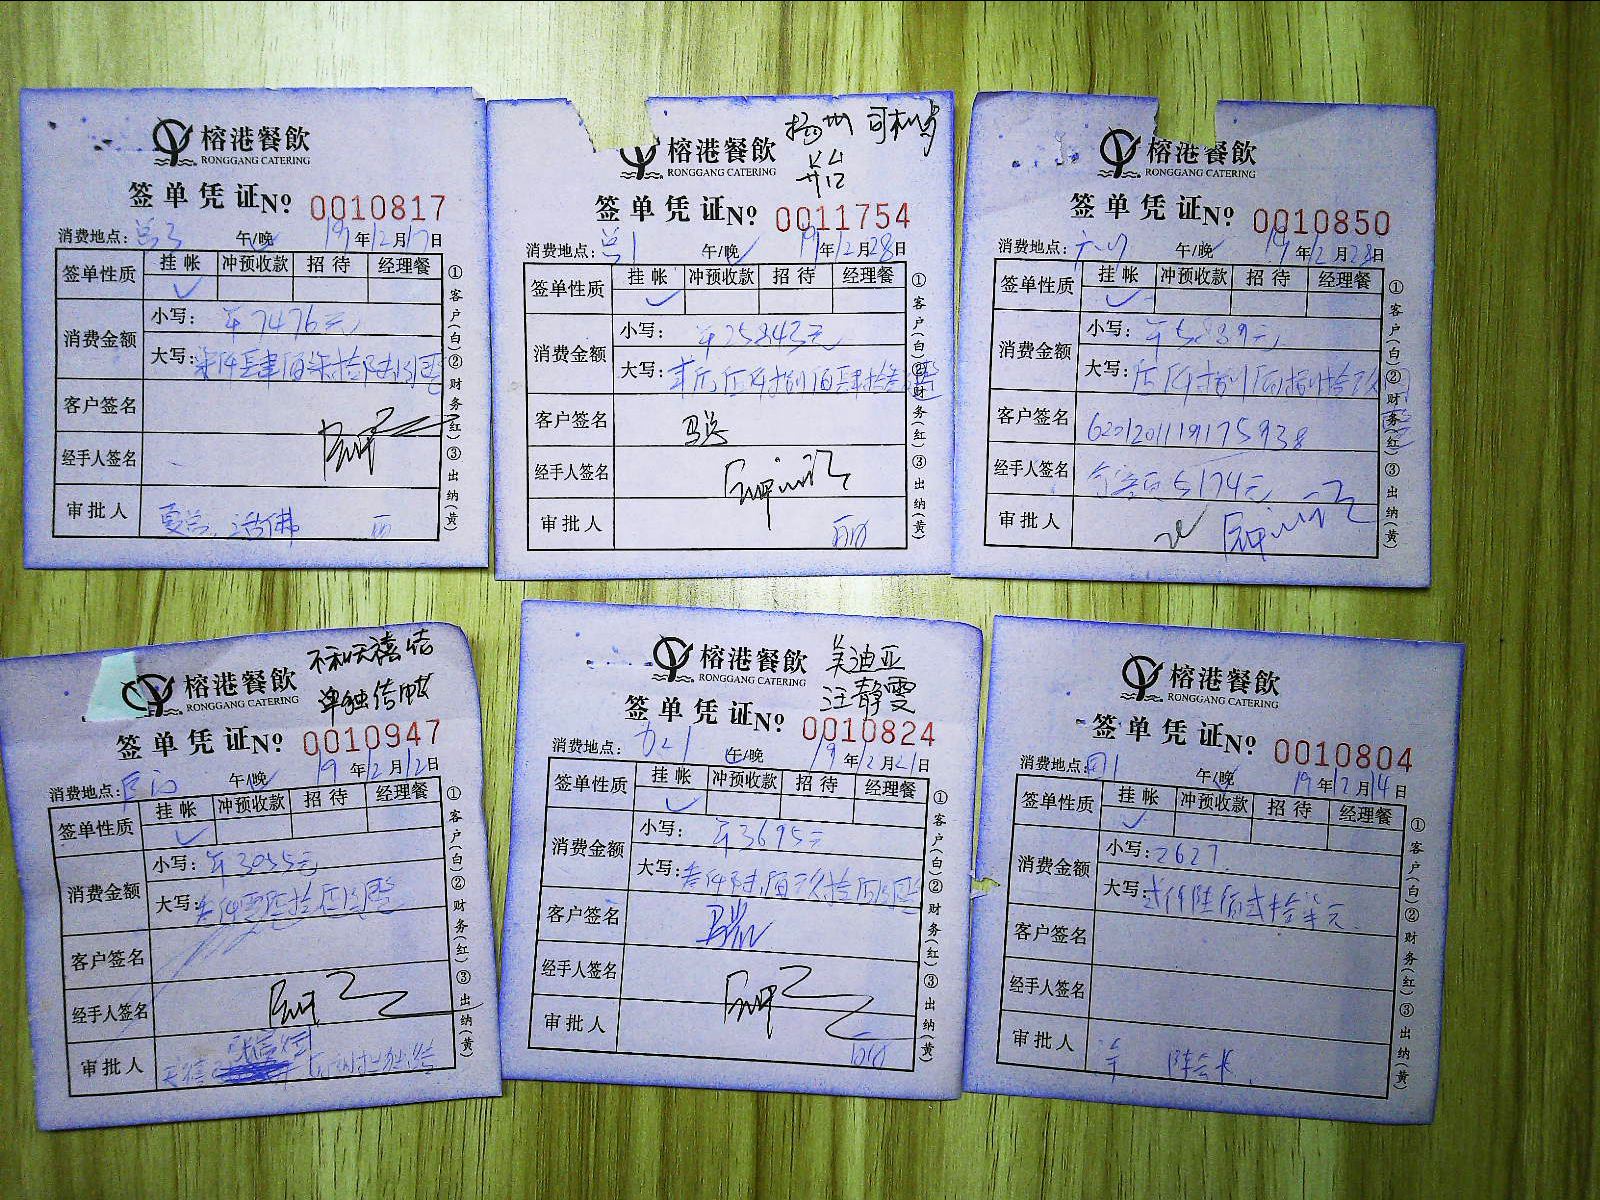 榕港餐飲
RONGGANG CATERING
签单凭证№ 0010817
消费地点：总3 午/晚 19年12月17日
签单性质 挂帐 冲预收款 招待 经理餐
消费金额
小写：￥7476元
大写：柒仟肆佰柒拾陆元整
客户签名
经手人签名
审批人
①客户（白）②财务（红）③出纳（黄）
榕港餐飲
RONGGANG CATERING
签单凭证№ 0011754
消费地点：总1 午/晚 19年12月28日
签单性质 挂帐 冲预收款 招待 经理餐
消费金额
小写：￥25843元
大写：贰万伍仟捌佰肆拾叁元整
客户签名
经手人签名
审批人
①客户（白）②财务（红）③出纳（黄）
榕港餐飲
RONGGANG CATERING
签单凭证№ 0010850
消费地点： 午/晚 19年12月28日
签单性质 挂帐 冲预收款 招待 经理餐
消费金额
小写：￥5889元
大写：伍仟捌佰捌拾玖元整
客户签名 6201201119175938
经手人签名 5174元
审批人
①客户（白）②财务（红）③出纳（黄）
不和天禧结
单独结账
榕港餐飲
RONGGANG CATERING
签单凭证№ 0010947
消费地点： 午/晚 19年12月12日
签单性质 挂帐 冲预收款 招待 经理餐
消费金额
小写：￥3055元
大写：叁仟零伍拾伍元整
客户签名
经手人签名
审批人
①客户（白）②财务（红）③出纳（黄）
吴迪亚
汪静雯
榕港餐飲
RONGGANG CATERING
签单凭证№ 0010824
消费地点： 午/晚 19年12月21日
签单性质 挂帐 冲预收款 招待 经理餐
消费金额
小写：￥3695元
大写：叁仟陆佰玖拾伍元整
客户签名
经手人签名
审批人
①客户（白）②财务（红）③出纳（黄）
榕港餐飲
RONGGANG CATERING
签单凭证№ 0010804
消费地点： 午/晚 19年12月14日
签单性质 挂帐 冲预收款 招待 经理餐
消费金额
小写：2627
大写：贰仟陆佰贰拾柒元
客户签名
经手人签名
审批人
①客户（白）②财务（红）③出纳（黄）